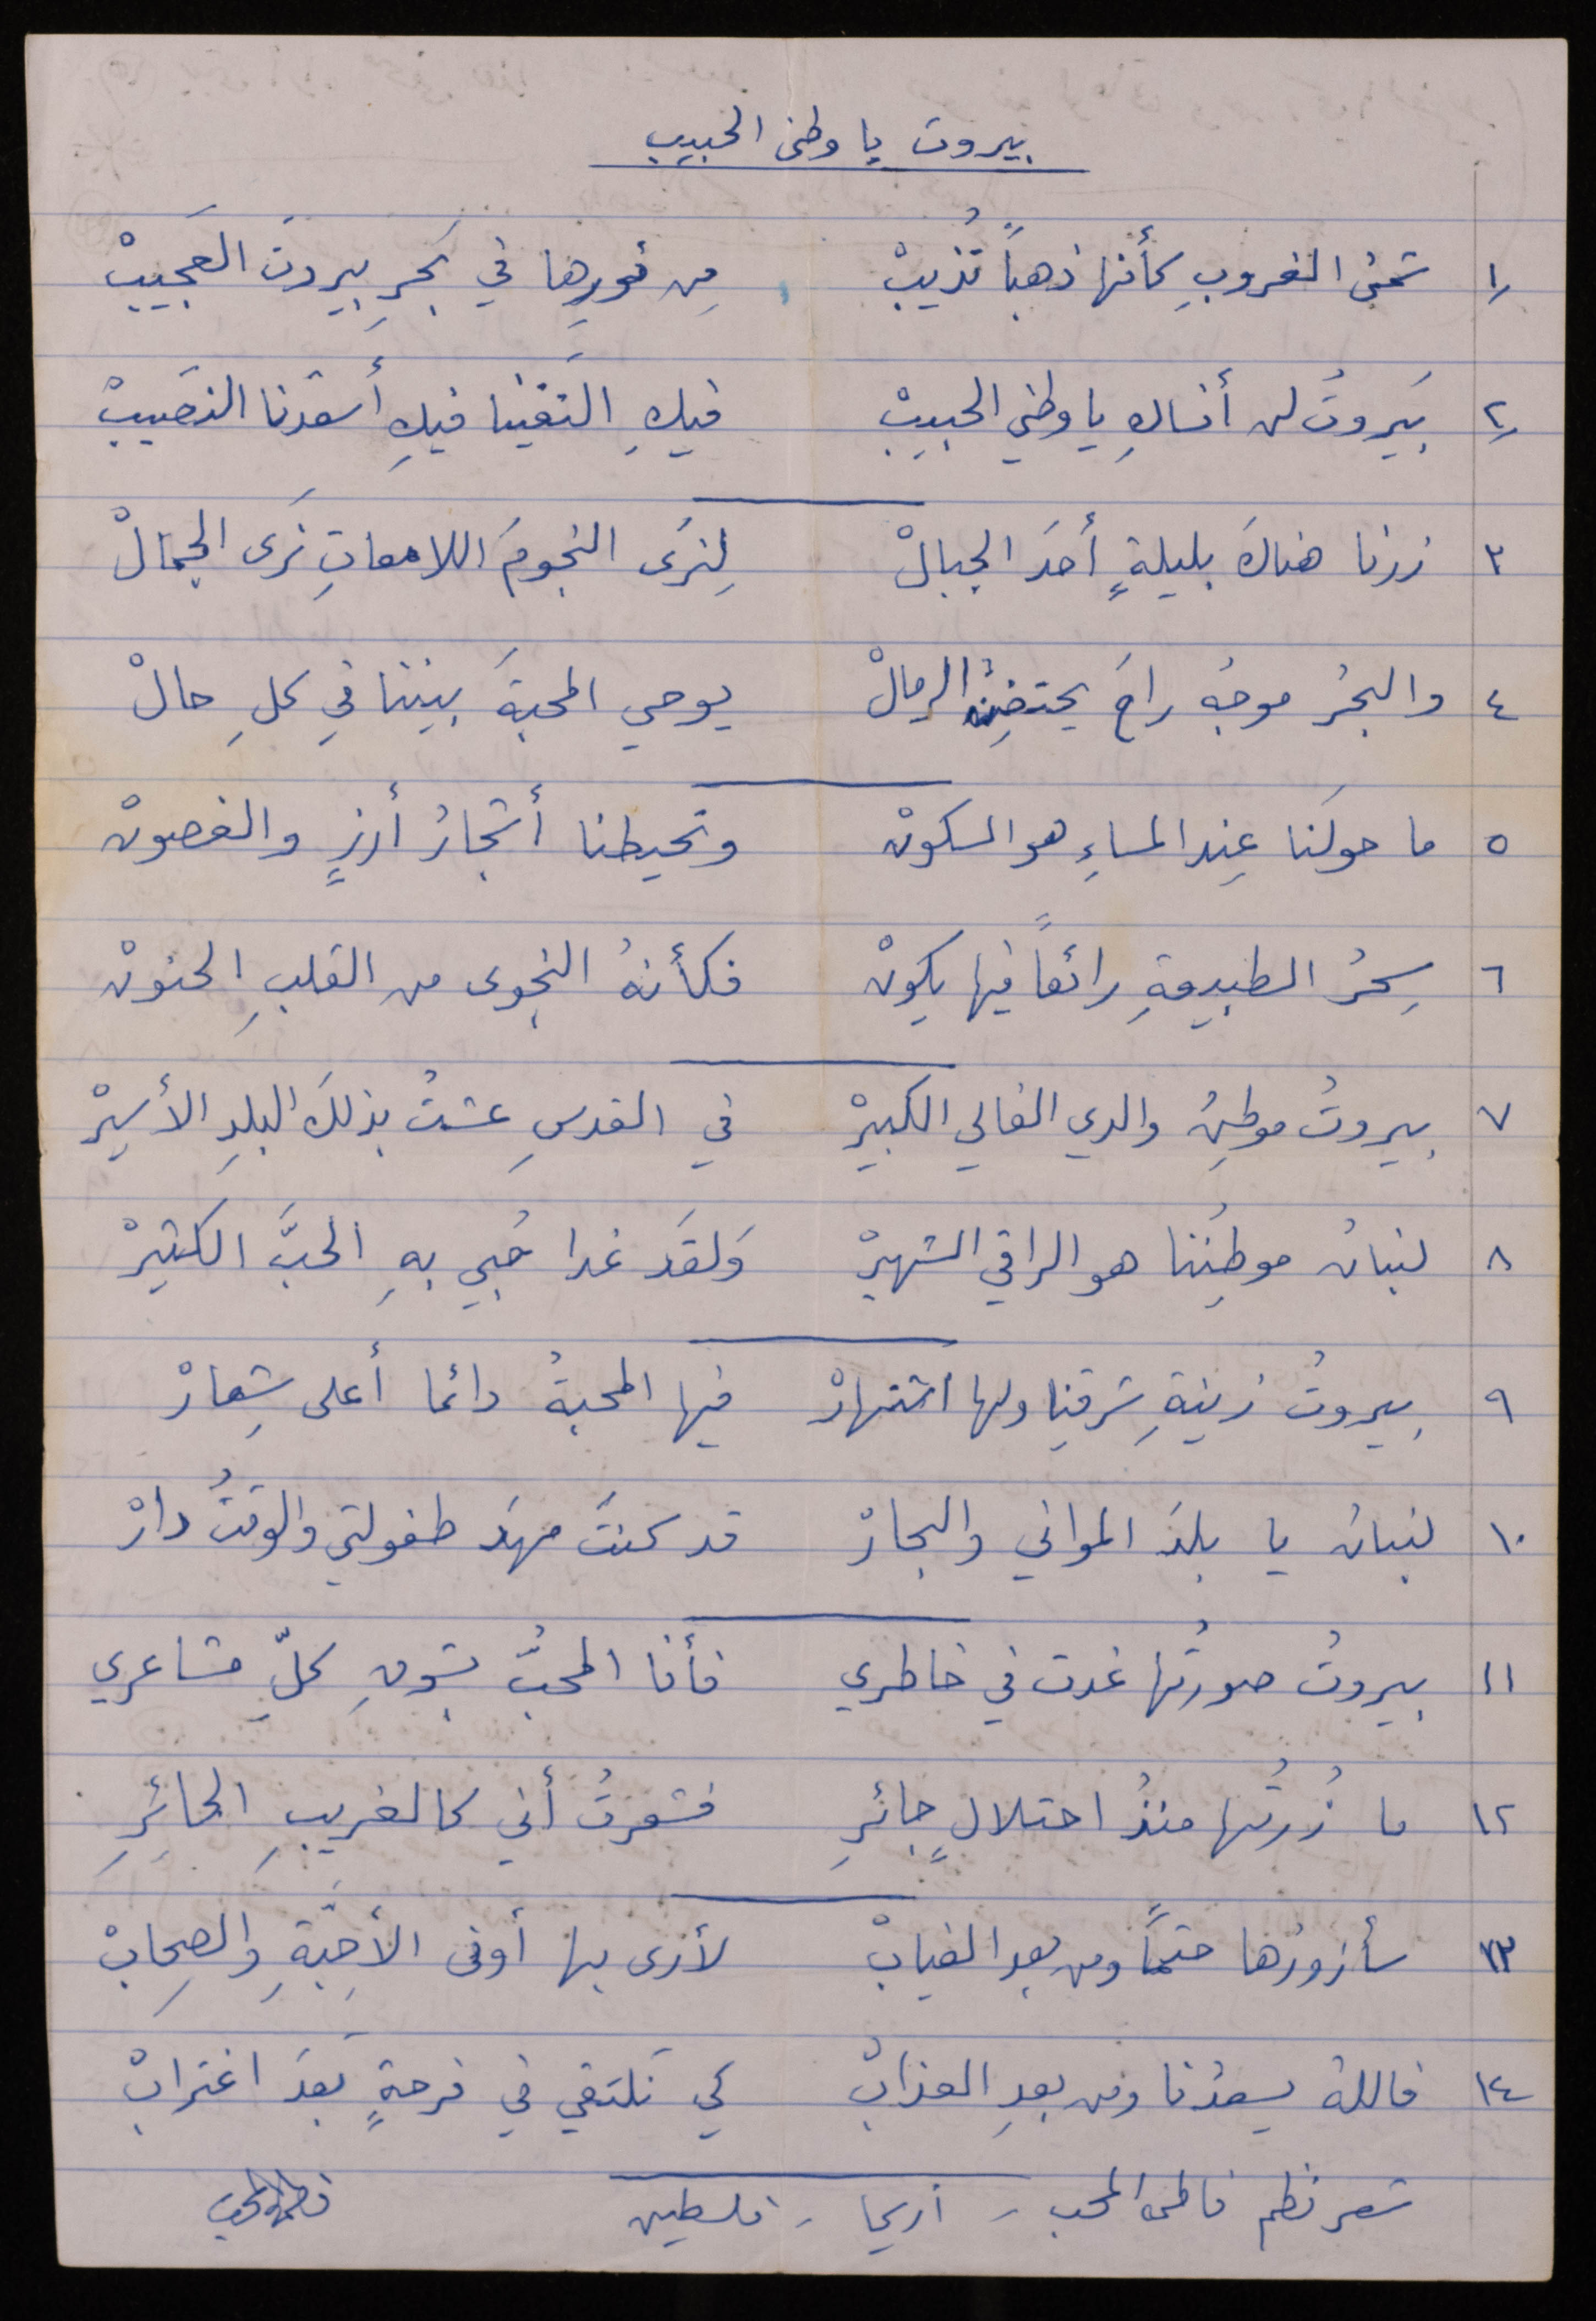 بيروت يا وطني الحبيب
١ شمسُ الغروبِ كأنها ذهباً تُذيبْ من نورِها في بَحرِ بيروتَ العَجيبْ
٢ بَيروتُ لن أنساكِ يا وطني الحبيبْ فيكِ التَقينا فيكِ أسعَدَنا النصَيبْ
٣ زرنا هناكَ بليلةٍ أحدَ الجبالْ لِنرَى النجومَ اللامعاتِ نَرى الجمالْ
٤ والبحرُ موجهُ راحَ يحتضِنُ الرمالْ يوحي المحبةَ بيننا في كلِ حالْ
٥ ما حولَنا عِند المساءِ هو السكونْ وتحيطنا أشجارُ أرزٍ والغصونْ
٦ سِحرُ الطبيعةِ رائعاً فيها يكونْ فكأنهُ النجوى من القلبِ الحنونْ
٧ بيروتُ موطِنُ والدي الغالي الكبيرْ في القدسِ عشتُ بذلكَ البلدِ الأسيرْ
٨ لبنانُ موطِنُنا هو الراقي الشهيرْ وَلقَد غدا حُبي بهِ الحبَّ الكثيرْ
٩ بيروتُ زينةِ شرقِنا ولها اشتهارْ فيها المحبةُ دائما أعلى شِعارْ
١٠ لبنانُ يا بلدَ المواني والبحارْ قد كنتَ مهدَ طفولتي والوقتُ دارْ
١١ بيروتُ صورتُها غدت في خاطري فأنا المحبُّ بشوقِ كلِّ مشاعري
١٢ ما زُرتُها منذُ احتلالٍ جائرِ فشعرتُ أني كالغريبِ الحائرِ
١٣ سأزورُها حتماً ومن بعد الغيابْ لأرى بها أوفى الأحِبَّةِ والصِحابْ
١٤ فاللهُ يسعدُنا ومن بعدِ العذابْ كي نَلتقي في فرحةٍ بَعدَ اغترابْ
شعر نظم فاطمة المحب - أريحا - فلسطين فاطمة المحب